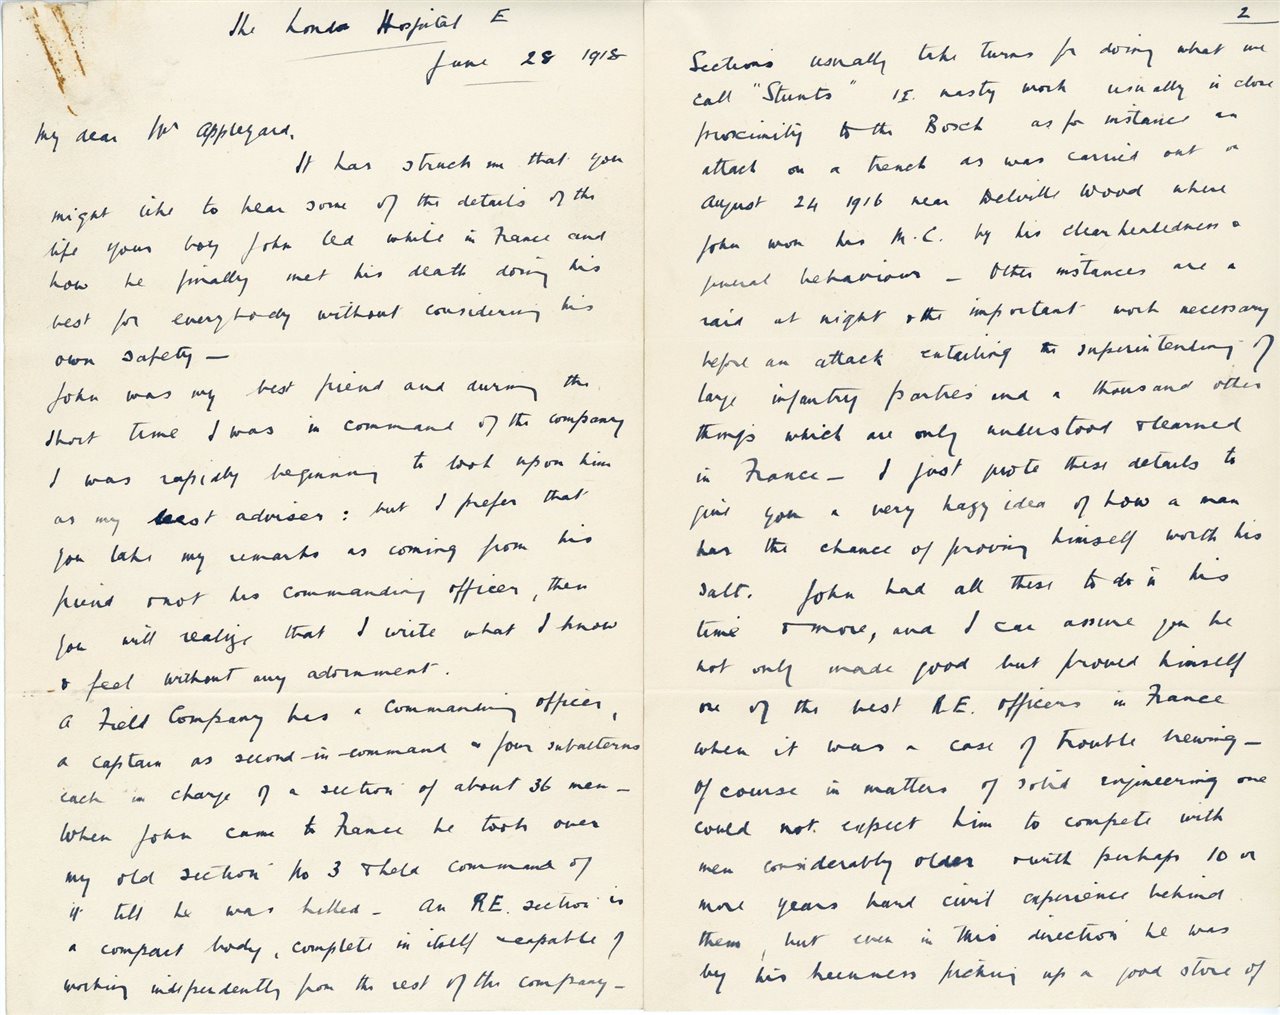 The London Hospital E
June 28 1918
My dear Mr Appleyard,
It has struck me that you
might like to hear some of the details of the
life your boy John led while in France and
how he finally met his death doing his
best for everybody without considering his
own safety —
John was my best friend and during the
short time I was in command of the company
I was rapidly beginning to look upon him
as my best adviser : but I prefer that
you take my remarks as coming from his
friend & not his commanding officer, then
you will realize that I write what I know
& feel without any adornment.
A Field Company has a Commanding officer,
a captain as second-in-command & four subalterns
each in charge of a section of about 36 men —
When John came to France he took over
my old section No 3 & held command of
it till he was killed — An R.E. section is
a compact body, complete in itself & capable of
working independently from the rest of the company —
2
Sections usually take turns for doing what we
call "Stunts" I.E. nasty work usually in close
proximity to the Bosch as for instance an
attack on a trench as was carried out on
August 24 1916 near Delville Wood where
John won his M.C. by his clearheadedness &
general behaviour — Other instances are a
raid at night & the important work necessary
before an attack entailing the superintending of
large infantry parties and a thousand other
things which are only understood & learned
in France — I just quote these details to
give you a very hazy idea of how a man
has the chance of proving himself worth his
salt. John had all these to do in his
time & more, and I can assure you he
not only made good but proved himself
one of the best R.E. officers in France
when it was a case of trouble brewing —
Of course in matters of solid engineering one
could not expect him to compete with
men considerably older & with perhaps 10 or
more years hard civil experience behind
them, but even in this direction he was
by his keenness picking up a good store of